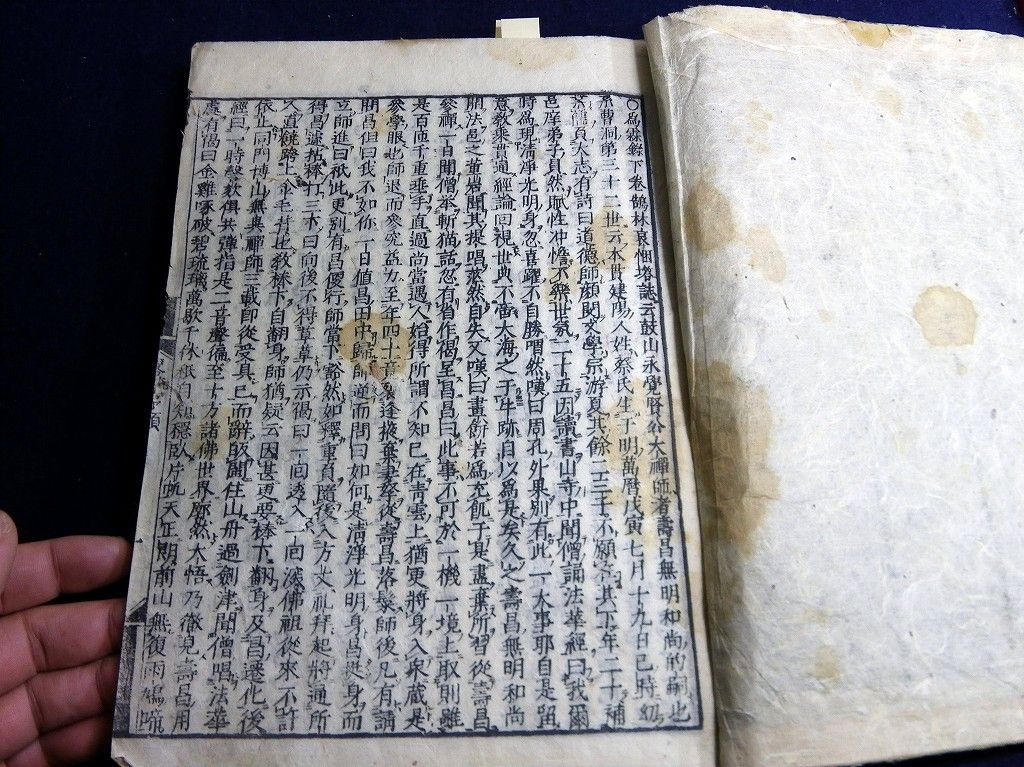 ○為霖錄下卷鶴林哀悃塔誌云鼓山永覺賢公大禪師者壽昌無明和尚的嗣也
系曹洞第三十二世云本貫建陽人姓蔡氏生于明萬曆戊寅七月十九日巳時幼
負大志有詩曰道德師顏閔文學宗游夏其餘二三子不願在其下年二十補
邑庠弟子員然賦性冲憺不樂世氛二十五因讀書山寺中聞僧誦法華經曰我爾
時為現清淨光明身忽喜躍不自勝喟然嘆曰周孔外果別有此一大事耶自是留
意敎乘曹通經論回視世典不啻大海之于牛跡自以為是矣久之壽昌無明和尚
開法邑之董岩聞其提唱茫然自失又嘆曰畫餅若為充飢于是盡棄所習從壽昌
參禪一日聞僧舉斬猫話忽有省作偈呈昌昌曰此事不可於一機一境上取則雖
是百匝千重垂手直過尚當遇人始得所謂不知已在青雲上猶更將身入衆藏是
參學眼也師退而參究益力至年四十意遂掖棄妻孥從壽昌落髮師後凡有請
問昌但曰我不如你一日值昌田中歸師逆而問曰如何是清淨光明身昌挺身而
立師進曰祇此更別有昌便行師當下豁然如釋重負隨後入方丈禮拜起將通所
得昌遽拈棒打三下曰向後不得草草仍示偈曰一向透入一向深佛祖從來不許
人道師猶疑云因甚更要棒下翻身及昌遷化後
依止同門博山無異禪師三載卽從受具已而辭敀閩住山舟過劍津聞僧唱法華
經曰一時謦欬俱共彈指是二音聲徧至十方諸佛世界廓然大悟乃徹見壽昌用
處有偈曰金雞啄破碧琉璃萬歇千休祇自知穩臥片帆天正朗前山無復雨